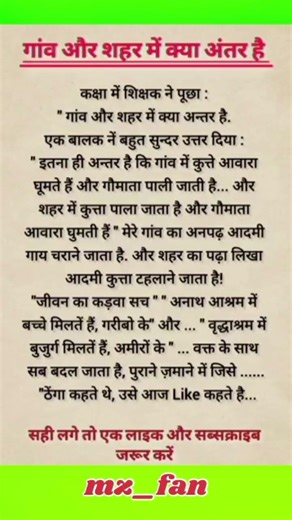 गांव और शहर में क्या अंतर है
कक्षा में शिक्षक ने पूछा :
" गांव और शहर में क्या अन्तर है.
एक बालक नें बहुत सुन्दर उत्तर दिया :
" इतना ही अन्तर है कि गांव में कुत्ते आवारा
घूमते हैं और गौमाता पाली जाती है... और
शहर में कुत्ता पाला जाता है और गौमाता
आवारा घुमती हैं " मेरे गांव का अनपढ़ आदमी
गाय चराने जाता है. और शहर का पढ़ा लिखा
आदमी कुत्ता टहलाने जाता है!
"जीवन का कड़वा सच " " अनाथ आश्रम में
बच्चे मिलतें हैं, गरीबो के" और ... " वृद्धाश्रम में
बुजुर्ग मिलतें हैं, अमीरों के " ... वक्त के साथ
सब बदल जाता है, पुराने ज़माने में जिसे ......
"ठेंगा कहते थे, उसे आज Like कहते है...
सही लगे तो एक लाइक और सब्सक्राइब
जरूर करें
mz_fan